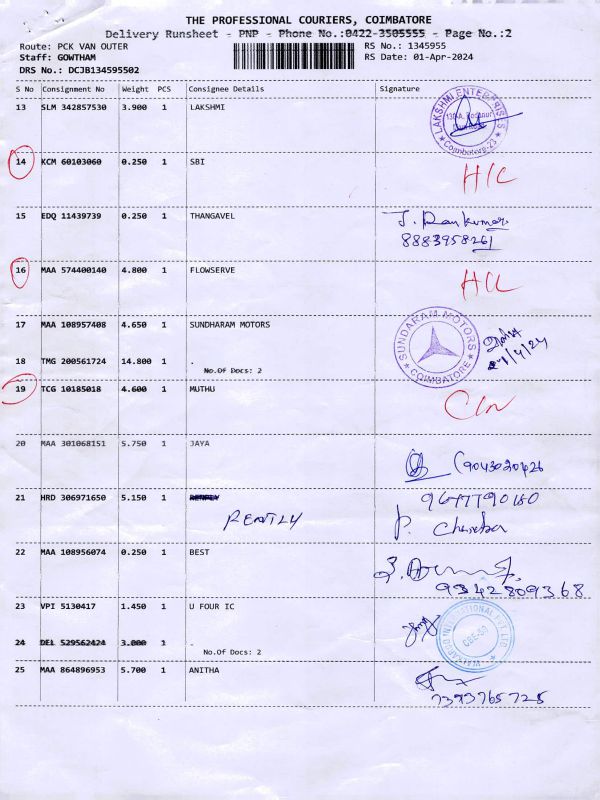 THE PROFESSIONAL COURIERS, COIMBATORE
Delivery Runsheet - PNP - Phone No.:0422-3505555 - Page No.:2
Route: PCK VAN OUTER RS No.: 1345955
Staff: GOWTHAM RS Date: 01-Apr-2024
DRS No.: DCJB134595502
S No Consignment No Weight PCS Consignee Details Signature
13 SLM 342857530 3.900 1 LAKSHMI
LAKSHMI ENTERPRISES
Coimbatore-23
14 KCM 60103060 0.250 1 SBI
15 EDQ 11439739 0.250 1 THANGAVEL
8883958261
16 MAA 574400140 4.800 1 FLOWSERVE
17 MAA 108957408 4.650 1 SUNDHARAM MOTORS
SUNDARAM MOTORS
COIMBATORE
18 TMG 200561724 14.800 1 .
No.Of Docs: 2
19 TCG 10185018 4.600 1 MUTHU
20 MAA 301068151 5.750 1 JAYA
9043020426
21 HRD 306971650 5.150 1 RENTLY
RENTLY
9677790180
22 MAA 108956074 0.250 1 BEST
9342809368
23 VPI 5130417 1.450 1 U FOUR IC
24 DEL 529562424 3.000 1 .
No.Of Docs: 2
25 MAA 864896953 5.700 1 ANITHA
7393765725